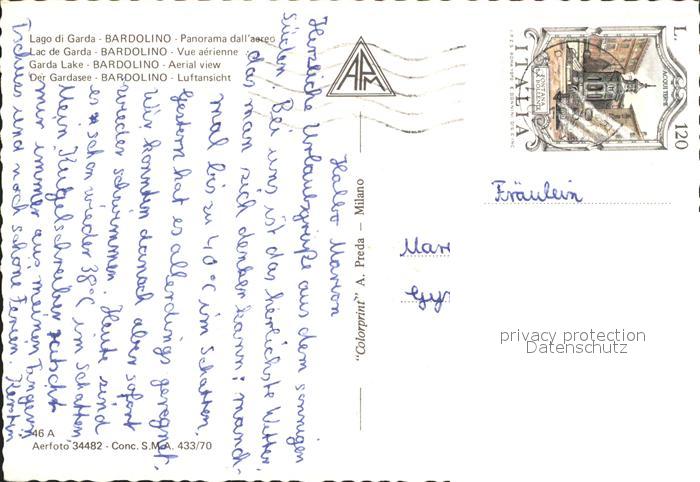 Lago di Garda - BARDOLINO - Panorama dall'aereo
Lac de Garda - BARDOLINO - Vue aérienne
Garda Lake - BARDOLINO - Aerial view
Der Gardasee - BARDOLINO - Luftansicht
Hallo Marion
Herzliche Urlaubsgrüße aus dem sonnigen
Süden. Bei uns ist das herrlichste Wetter,
das man sich denken kann: manch-
mal bis zu 40°C im Schatten.
Gestern hat es allerdings geregnet.
Wir konnten danach aber sofort
wieder schwimmen. Heute sind
es schon wieder 38°C im Schatten.
Mein Kugelschreiber rutscht
mir immer aus meinen Fingern.
Tschüss und noch schöne Ferien. Kerstin
46 A
Aerfoto 34482 - Conc. S.M.A. 433/70
"Colorprint" A. Preda - Milano
APM
L. 120
ITALIA
ACQUI TERME
Fräulein
Mar
Gy
privacy protection
Datenschutz